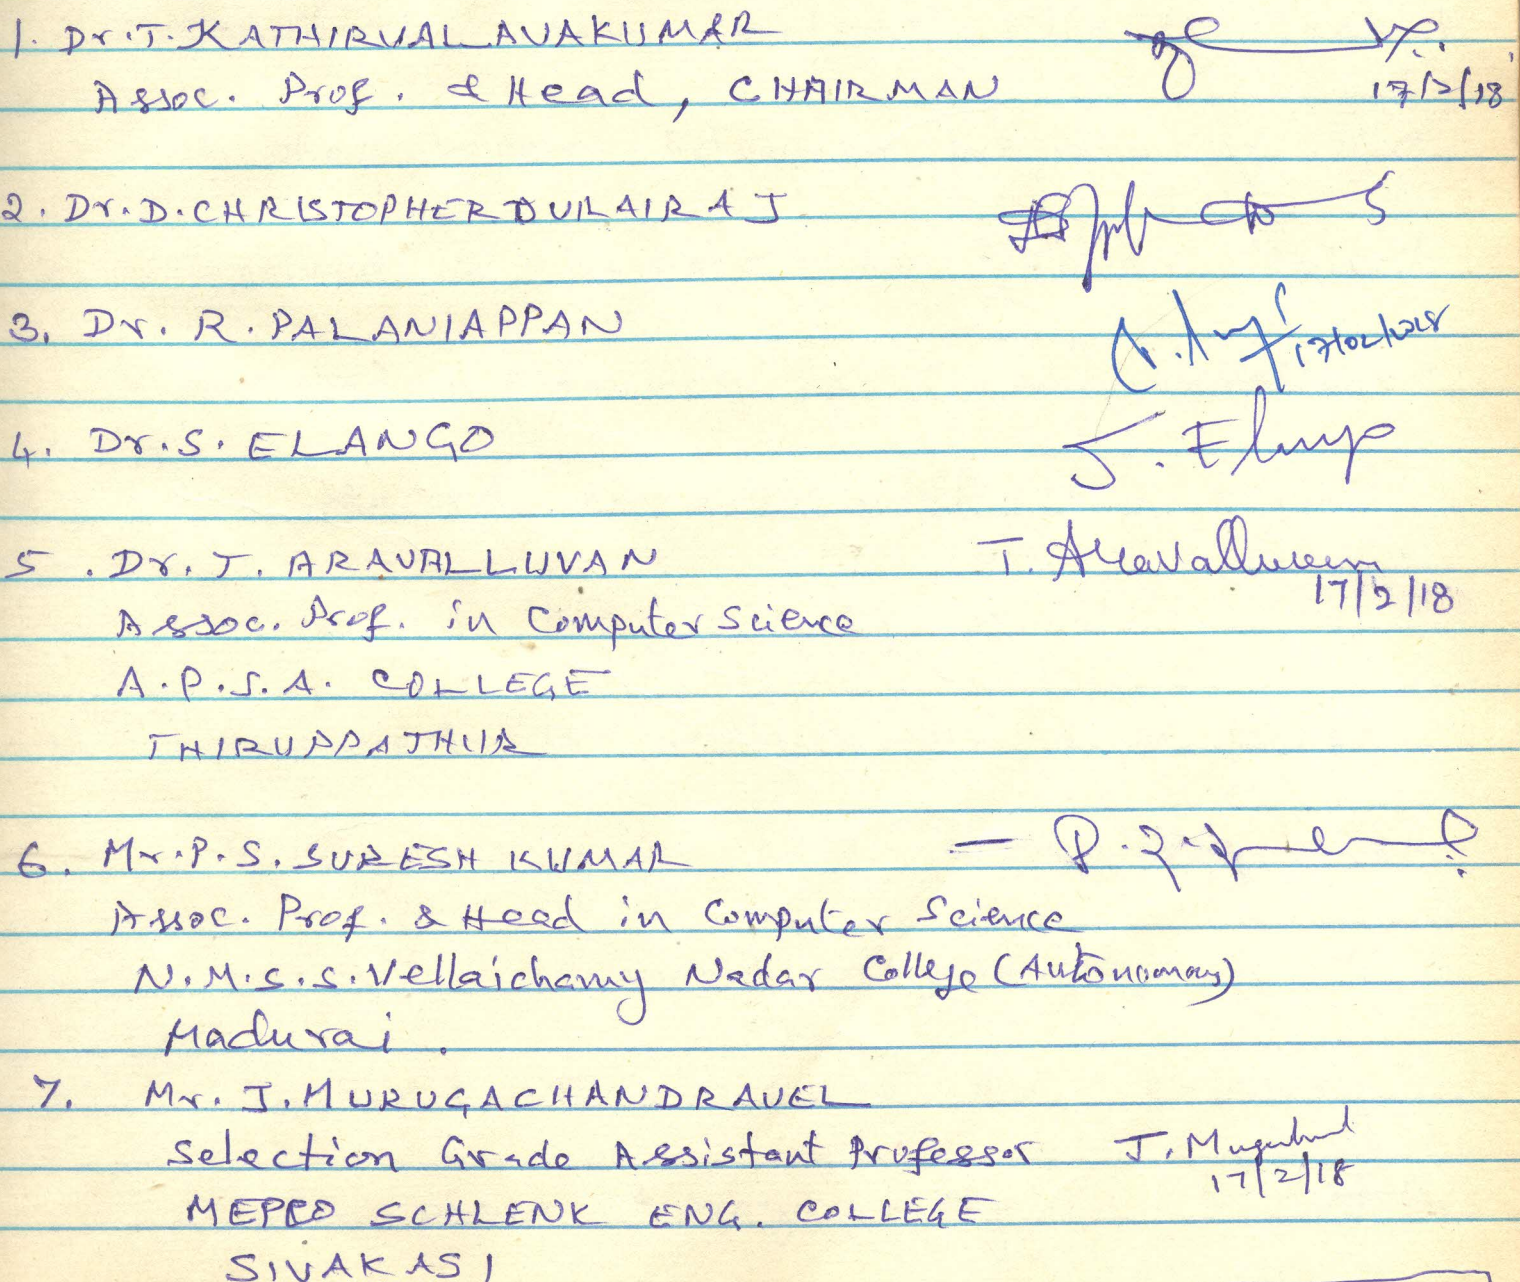 1. Dr.T. KATHIRVALAVAKUMAR
Assoc. Prof. & Head, CHAIRMAN
17/2/18
2. Dr.D.CHRISTOPHER DURAIRAJ
3. Dr. R. PALANIAPPAN
17/02/2018
4. Dr.S. ELANGO
S. Elango
5. Dr. T. ARAVALLUVAN
T. Aravalluvan
17/2/18
Assoc. Prof. in Computer Science
A.P.S.A. COLLEGE
THIRUPPATHUR
6. Mr.P.S. SURESH KUMAR
Assoc. Prof. & Head in Computer Science
N.M.S.S.Vellaichamy Nadar College (Autonomous)
Madurai.
7. Mr. J. MURUGACHANDRAVEL
Selection Grade Assistant Professor
17/2/18
MEPCO SCHLENK ENG. COLLEGE
SIVAKASI